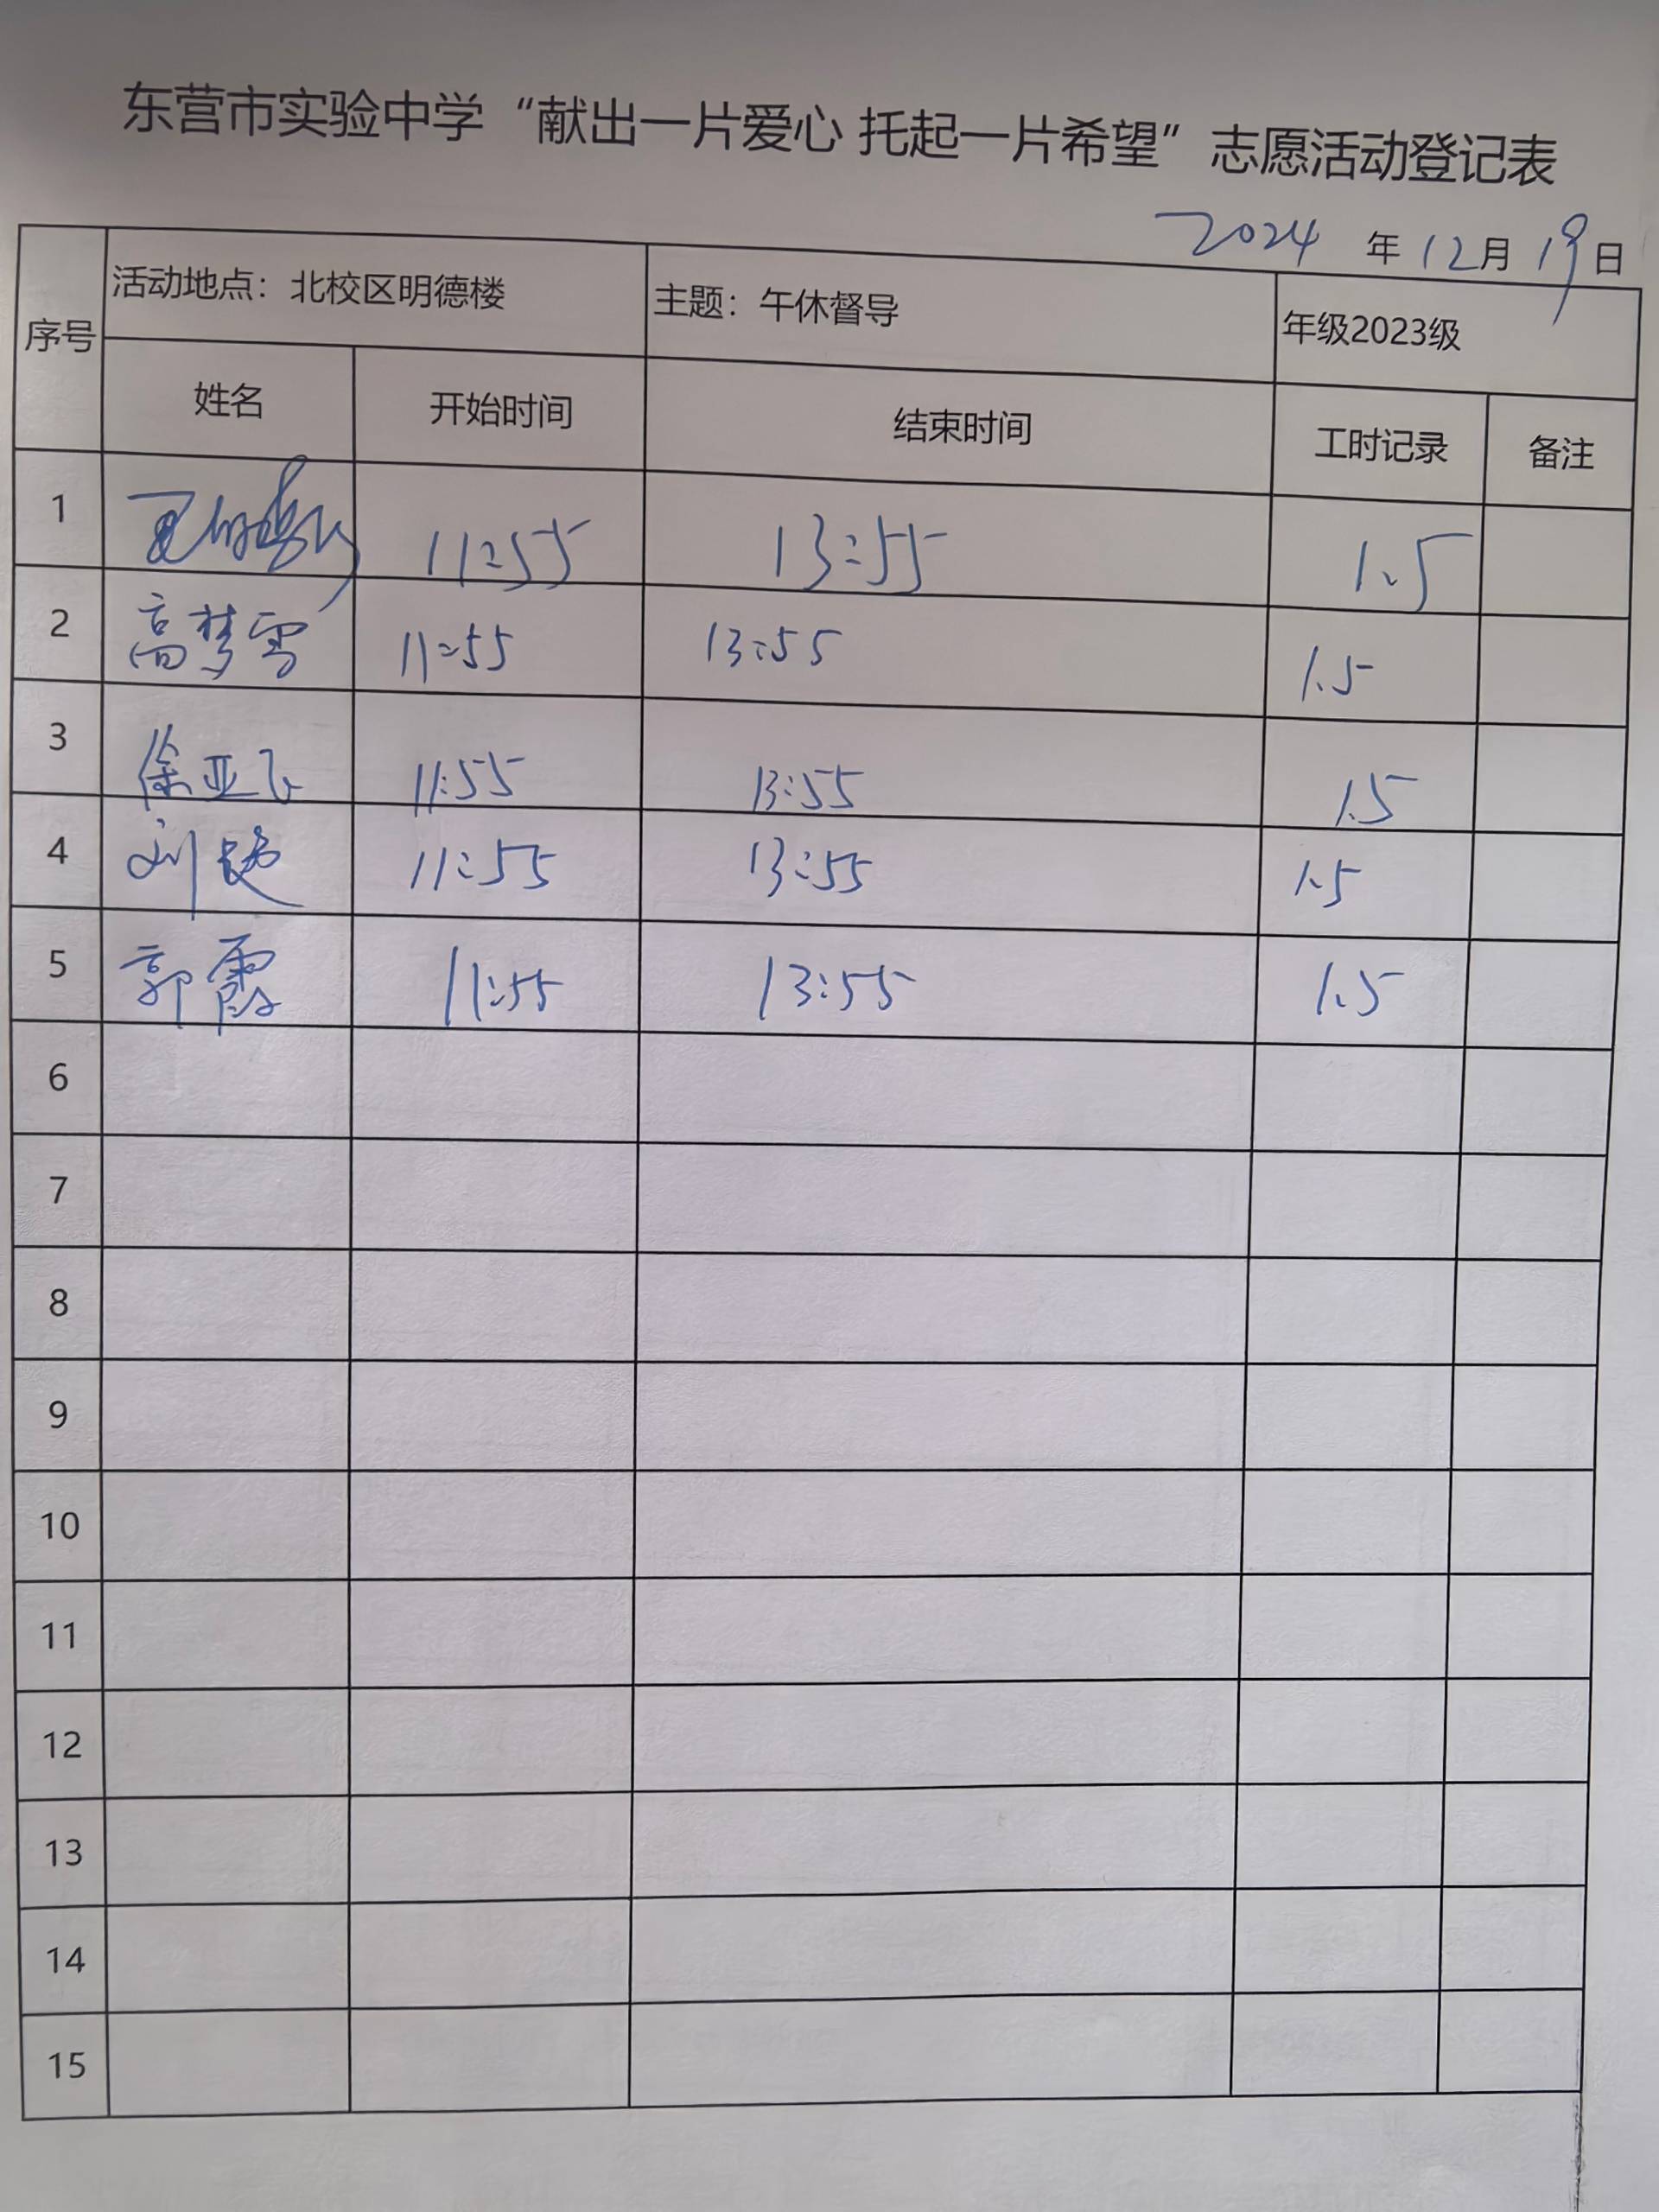 东营市实验中学“献出一片爱心 托起一片希望”志愿活动登记表
2024 年 12 月 19 日
序号 活动地点：北校区明德楼 主题：午休督导 年级2023级
姓名 开始时间 结束时间 工时记录 备注
1 11:55 13:55 1.5
2 高梦雪 11:55 13:55 1.5
3 徐亚飞 11:55 13:55 1.5
4 刘 11:55 13:55 1.5
5 郭霞 11:55 13:55 1.5
6
7
8
9
10
11
12
13
14
15